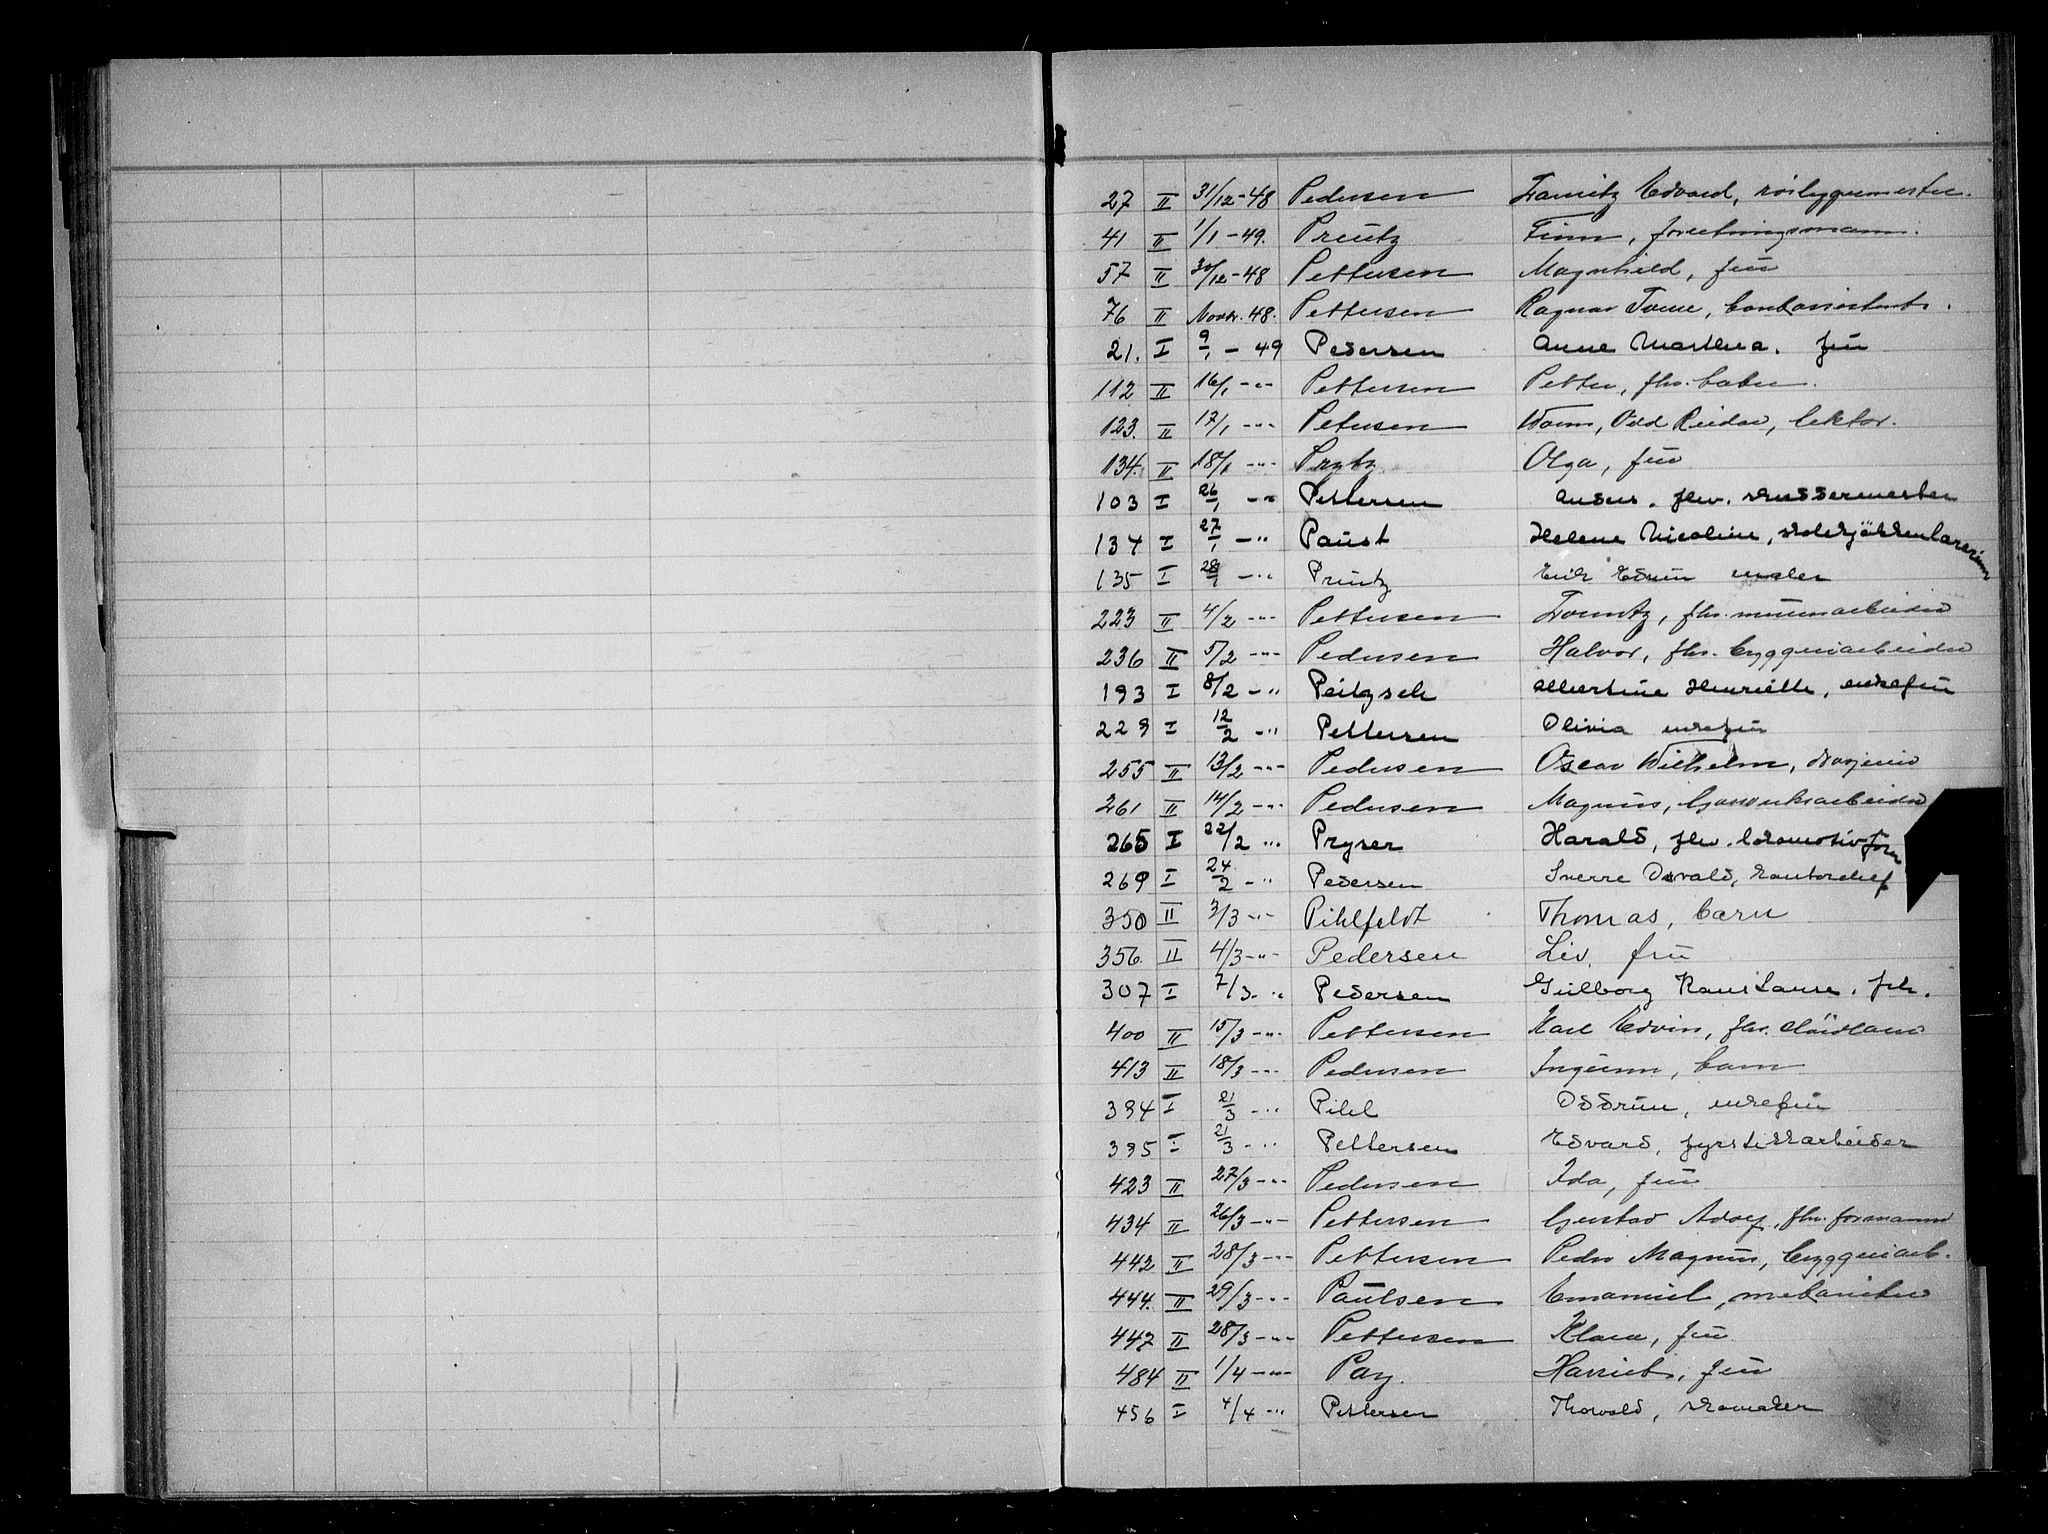 27 II 31/12-48 Pedersen Lauritz Edvard, rørbyggemester.
41 II 1/1-49. Preutz Finn, forretningsmann.
57 II 30/12-48 Pettersen Magnhild, frue
76 II Novbr. 48. Pettersen Ragnar Tome, kontorist
21. I 9/1 - 49 Pedersen Anne Marthea. frue
112 II 16/1 -"- Pettersen Petter, fhv.
123. II 17/1 -"- Petersen Odd Reidar, lektor.
134. II 18/1 -"- Prytz Olga, frue
103 I 26/1 -"- Pettersen Anders. fhv. skreddermester
134 I 27/1 -"- Paust Helene Nicoline, skolekjøkkenlærerinne
135 I 28/1 -"- Preutz Erik Edvin maler
223 II 4/2 -"- Pettersen Lauritz, fhv. murerarbeider
236 II 5/2 -"- Pedersen Halvor, fhv. bryggeriarbeider
193 I 8/2 -"- Peitzsch Albertine Henriette, enkefru
229 I 12/2 -"- Pettersen Olivia enkefru
255 II 13/2 -"- Pedersen Oscar Wilhelm,
261 II 14/2 -"- Pedersen Magnus, Gassverksarbeider
265 I 22/2 -"- Pryser Harald, fhv. lokomotivfører
269 I 24/2 -"- Pedersen Sverre Osvald, kontorchef
350 II 3/3 -"- Pihlfeldt Thomas, barn
356. II 4/3 -"- Pedersen Liv. fru
307 I 7/3. -"- Pedersen Gulborg Konstanse. frk.
400 II 15/3 -"- Pettersen Karl Edvin, fhv.
413 II 18/3 -"- Pedersen Ingunn, barn
394 I 21/3 -"- Pihl Oddrun, enkefru
395 I 21/3 -"- Pettersen Edvard, fyrstikkarbeider
423 II 27/3 -"- Pedersen Ida, frue
434 II 26/3 -"- Pettersen Gustav Adolf, fhv. formann
442 II 28/3 -"- Pettersen Peder Magnus, bryggeriarb.
444. II 29/3 -"- Paulsen Emanuel, mekaniker
447 II 28/3 -"- Pettersen Klara, frue
484 II 1/4 -"- Pay. Harriet, frue
456 I 4/4 -"- Pettersen Thorvald, skomaker